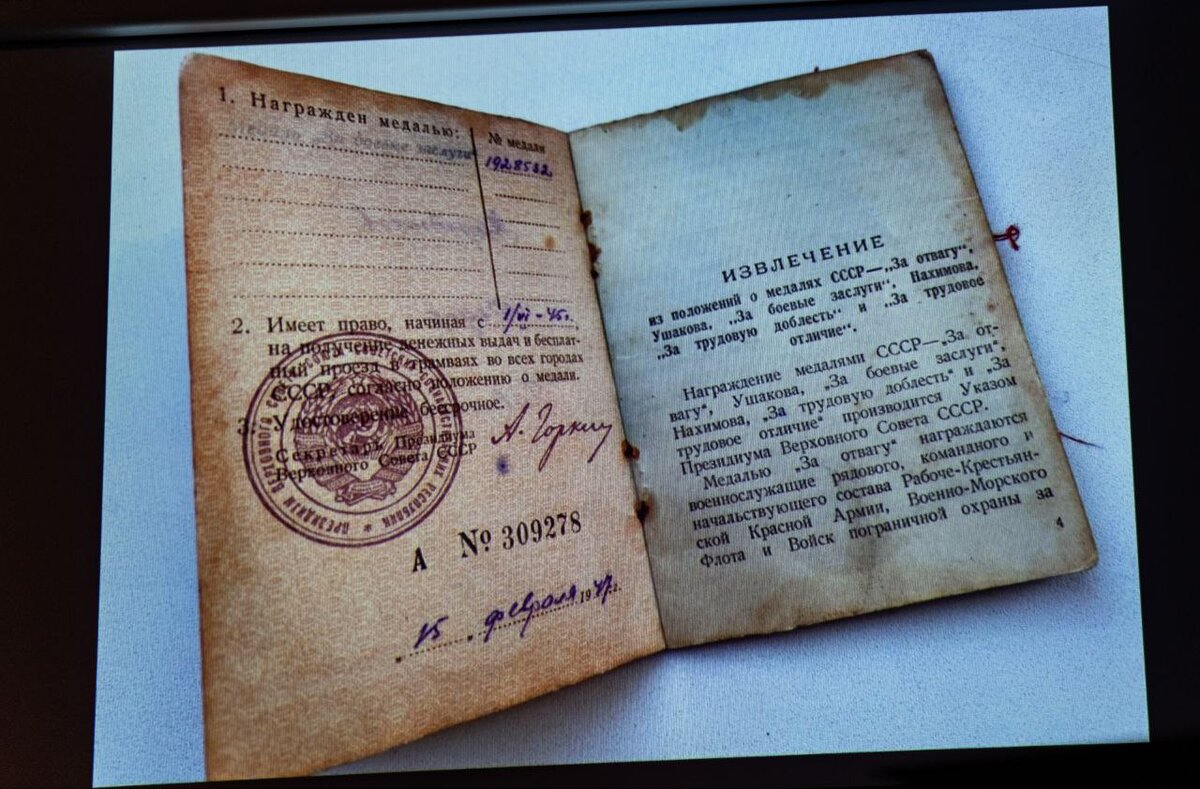 1. Награжден медалью:
№ медали
Медаль „За боевые заслуги“
1928532
2. Имеет право, начиная с 1/VI-45г.,
на получение денежных выдач и бесплат-
ный проезд в трамваях во всех городах
СССР, согласно положению о медали.
3. Удостоверение бессрочное.
Секретарь Президиума
Верховного Совета СССР
А. Горкин
ПРЕЗИДИУМ ВЕРХОВНОГО СОВЕТА СОЮЗА СОВЕТСКИХ СОЦИАЛИСТИЧЕСКИХ РЕСПУБЛИК
А № 309278
„15„ февраля 1947г.
ИЗВЛЕЧЕНИЕ
из положений о медалях СССР—„За отвагу“,
Ушакова, „За боевые заслуги“, Нахимова,
„За трудовую доблесть“ и „За трудовое
отличие“.
Награждение медалями СССР—„За от-
вагу“, Ушакова, „За боевые заслуги“,
Нахимова, „За трудовую доблесть“ и „За
трудовое отличие“ производится Указом
Президиума Верховного Совета СССР.
Медалью „За отвагу“ награждаются
военнослужащие рядового, командного и
начальствующего состава Рабоче-Крестьян-
ской Красной Армии, Военно-Морского
Флота и Войск пограничной охраны за
4